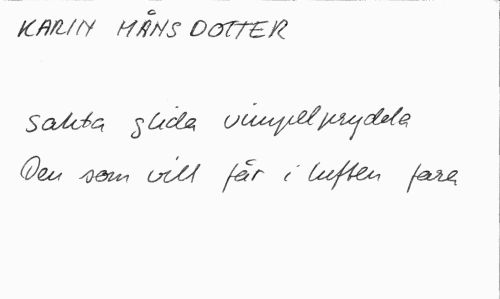 KARIN MÅNSDOTTER
sakta glida vimpelprydda
Den som vill får i luften fara